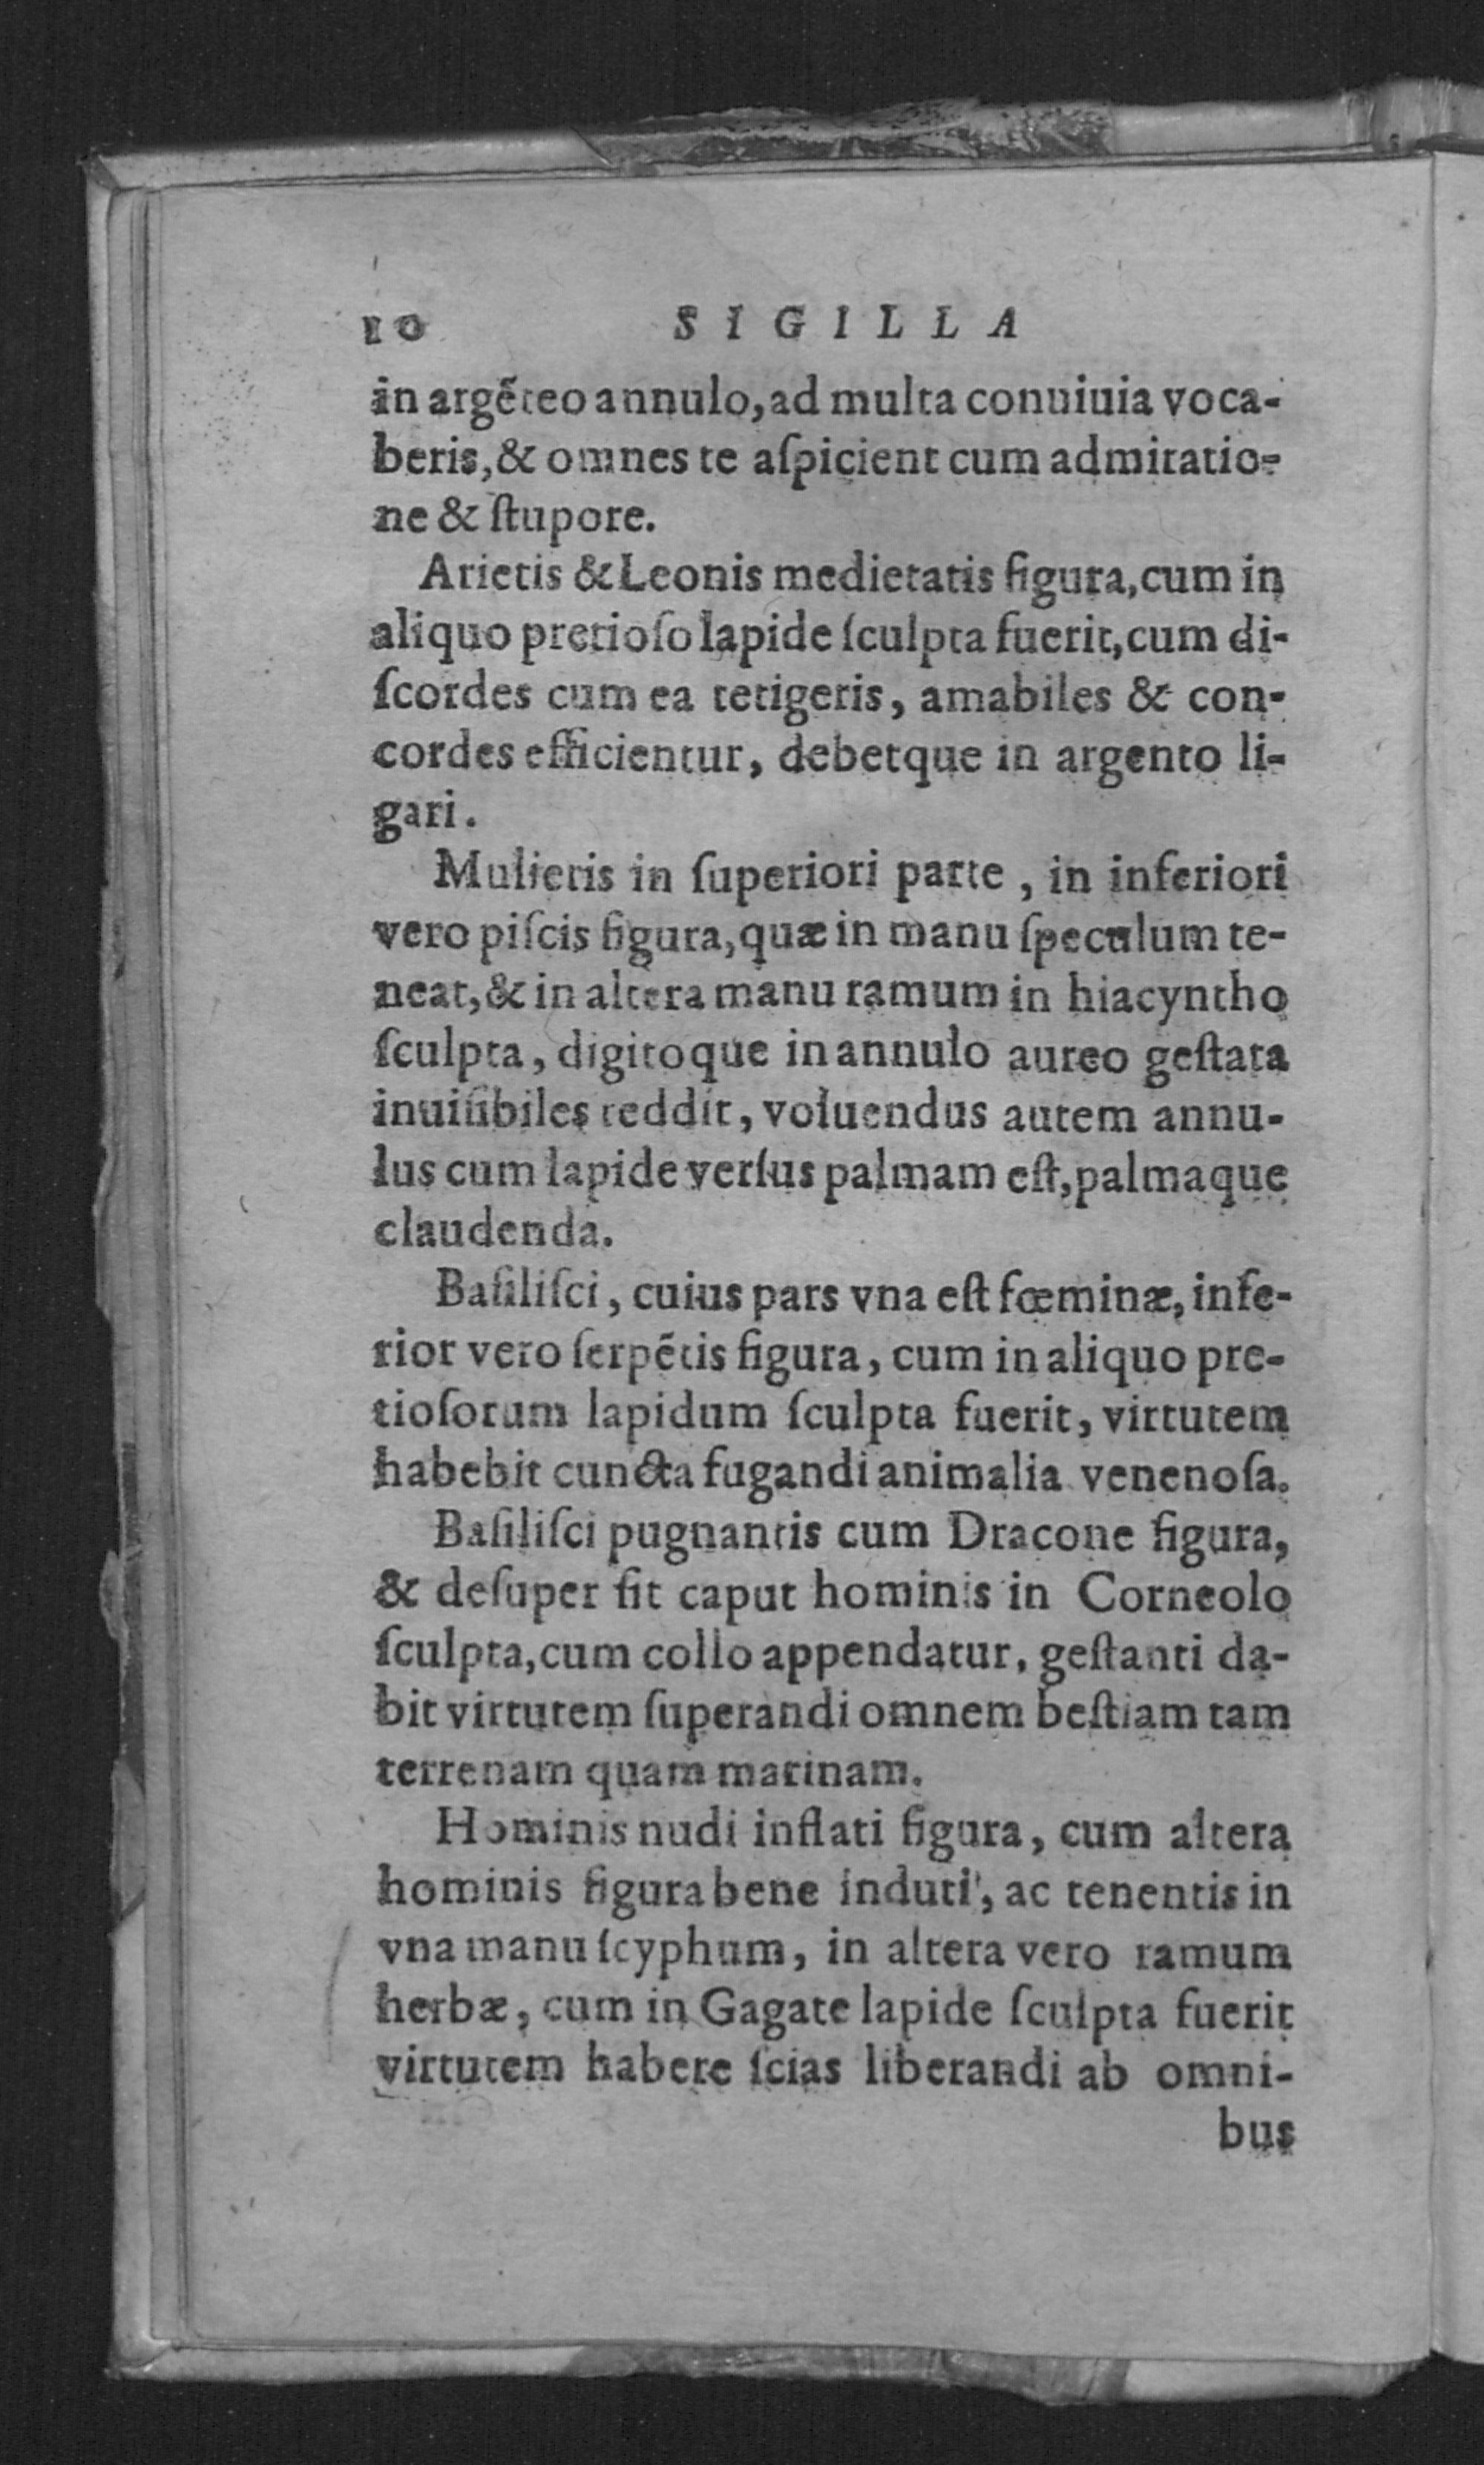 10 SIGILLA
in argẽteo annulo, ad multa conuiuia voca-
beris, & omnes te aſpicient cum admiratio-
ne & ſtupore.
Arietis & Leonis medietatis figura, cum in
aliquo pretioſo lapide ſculpta fuerit, cum di-
ſcordes cum ea tetigeris, amabiles & con-
cordes efficientur, debetque in argento li-
gari.
Mulieris in ſuperiori parte, in inferiori
vero piſcis figura, quæ in manu ſpeculum te-
neat, & in altera manu ramum in hiacyntho
ſculpta, digitoque in annulo aureo geſtata
inuiſibiles reddit, voluendus autem annu-
lus cum lapide verſus palmam eſt, palmaque
claudenda.
Baſiliſci, cuius pars vna eſt fœminæ, infe-
rior vero ſerpẽtis figura, cum in aliquo pre-
tioſorum lapidum ſculpta fuerit, virtutem
habebit cuncta fugandi animalia venenoſa.
Baſiliſci pugnantis cum Dracone figura,
& deſuper ſit caput hominis in Corneolo
ſculpta, cum collo appendatur, geſtanti da-
bit virtutem ſuperandi omnem beſtiam tam
terrenam quam marinam.
Hominis nudi inflati figura, cum altera
hominis figura bene induti, ac tenentis in
vna manu ſcyphum, in altera vero ramum
herbæ, cum in Gagate lapide ſculpta fuerit
virtutem habere ſcias liberandi ab omni-
bus